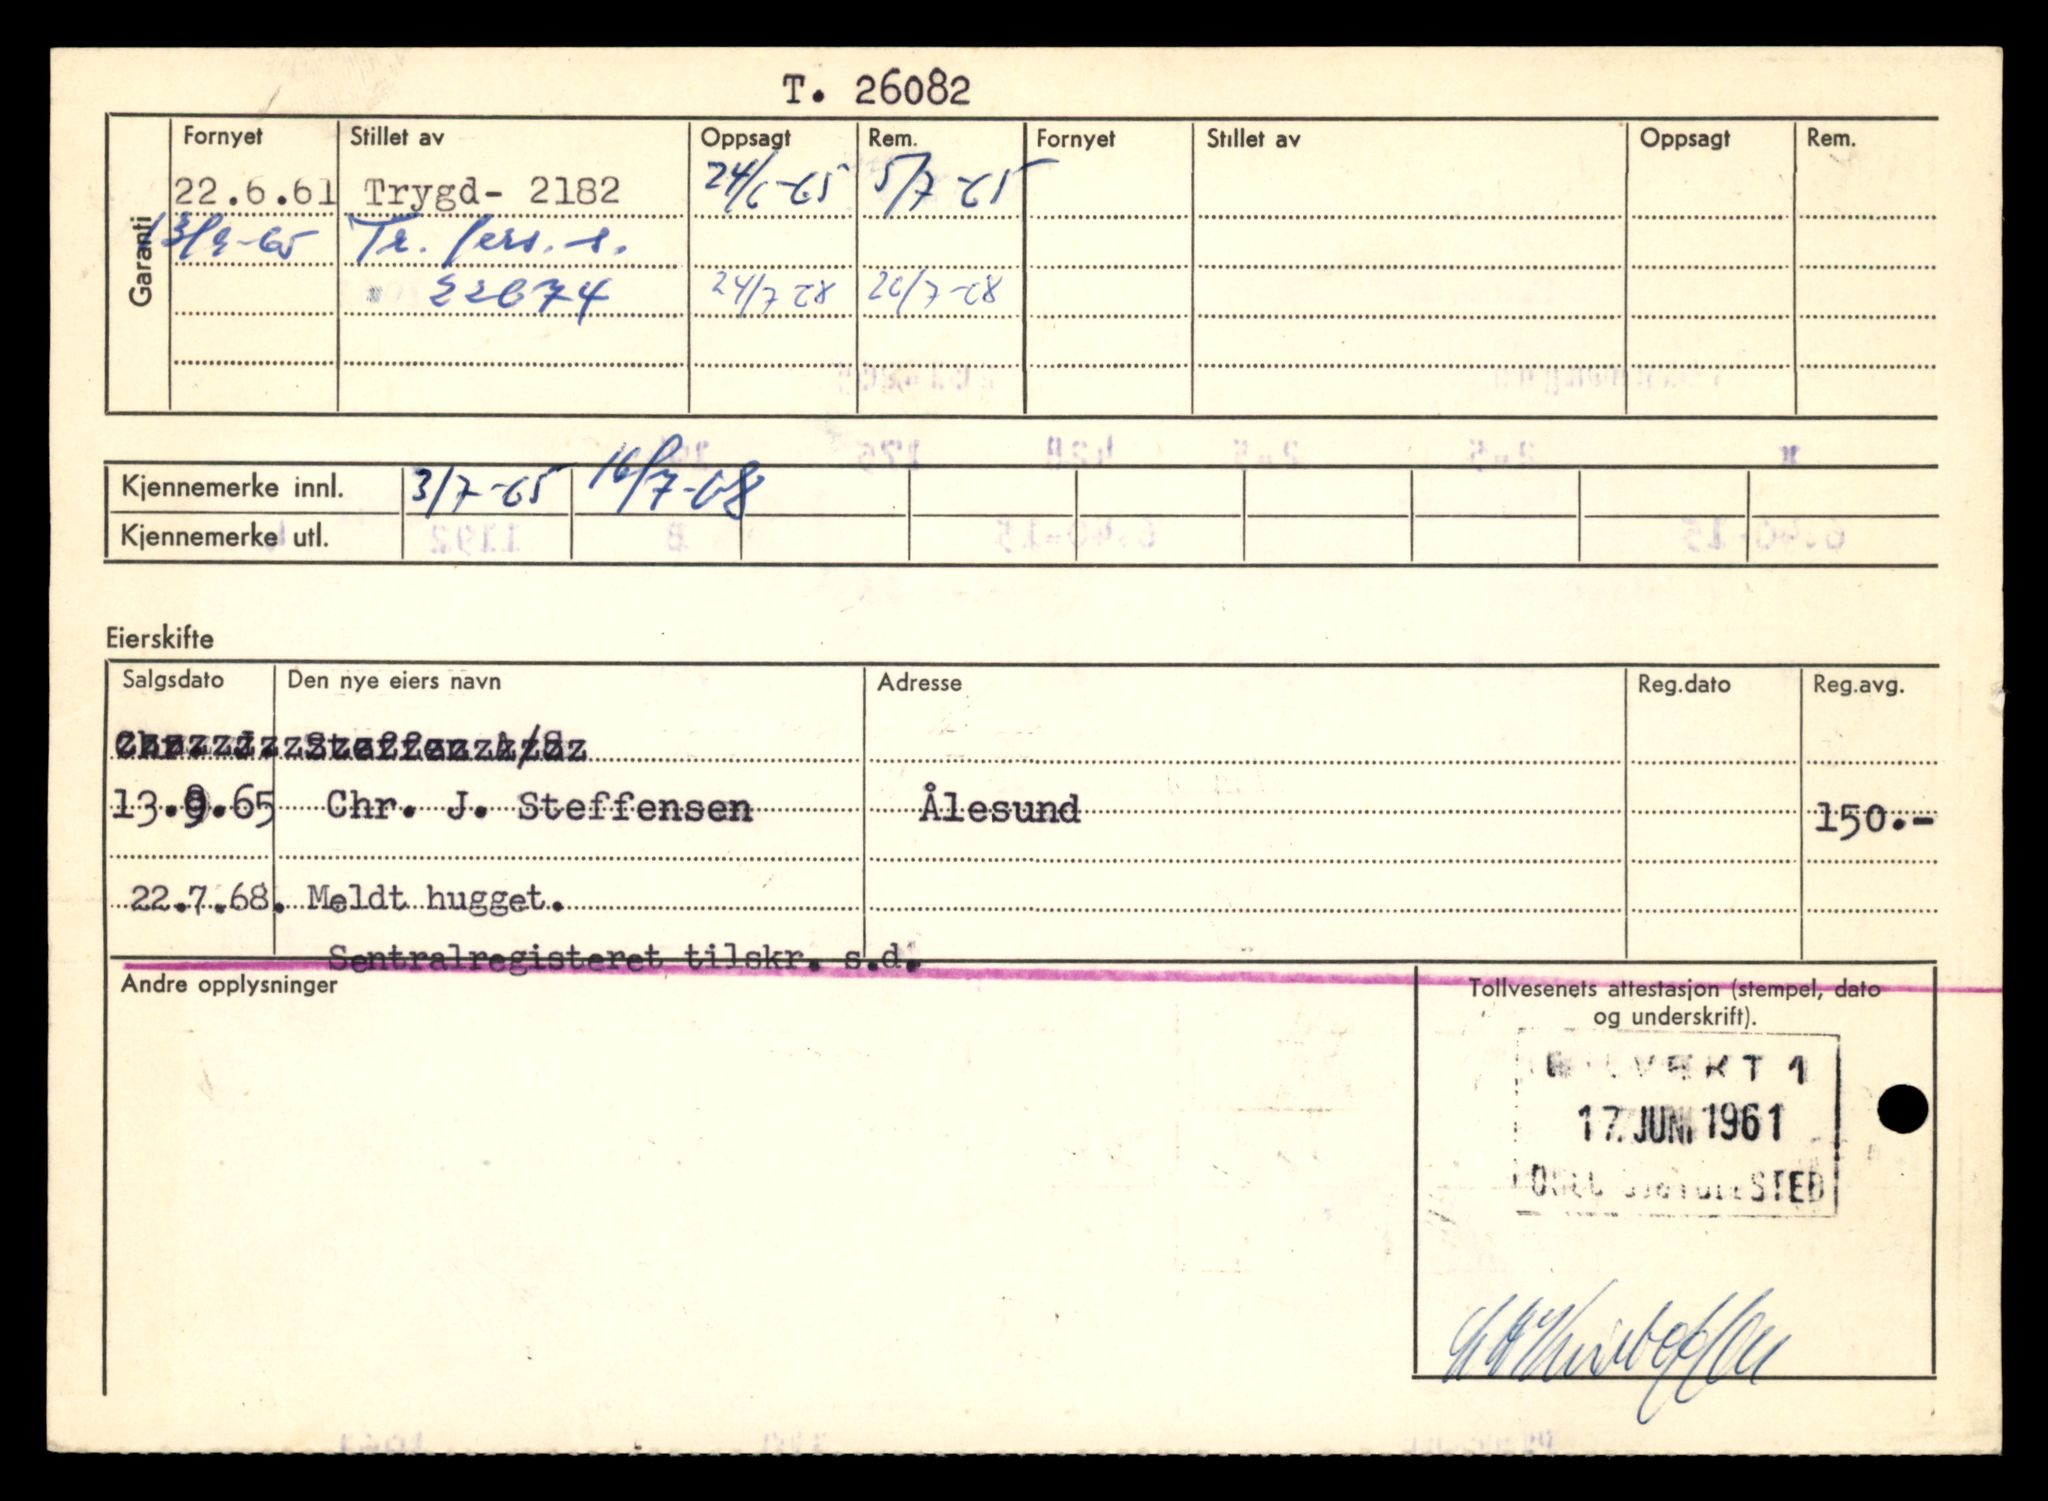 T. 26082
Garanti
Fornyet Stillet av Oppsagt Rem. Fornyet Stillet av Oppsagt Rem.
22.6.61 Trygd- 2182 24/6-65 5/7-65
13/9-65 Tr. pers. s.
" 22674 24/7 68 26/7-68
Kjennemerke innl. 3/7-65 16/7-68
Kjennemerke utl.
Eierskifte
Salgsdato Den nye eiers navn Adresse Reg.dato Reg.avg.
13.9.65 Chr. J. Steffensen Ålesund 150.-
22.7.68. Meldt hugget.
Sentralregisteret tilskr. s.d.
Andre opplysninger
Tollvesenets attestasjon (stempel, dato
og underskrift).
17. JUNI 1961